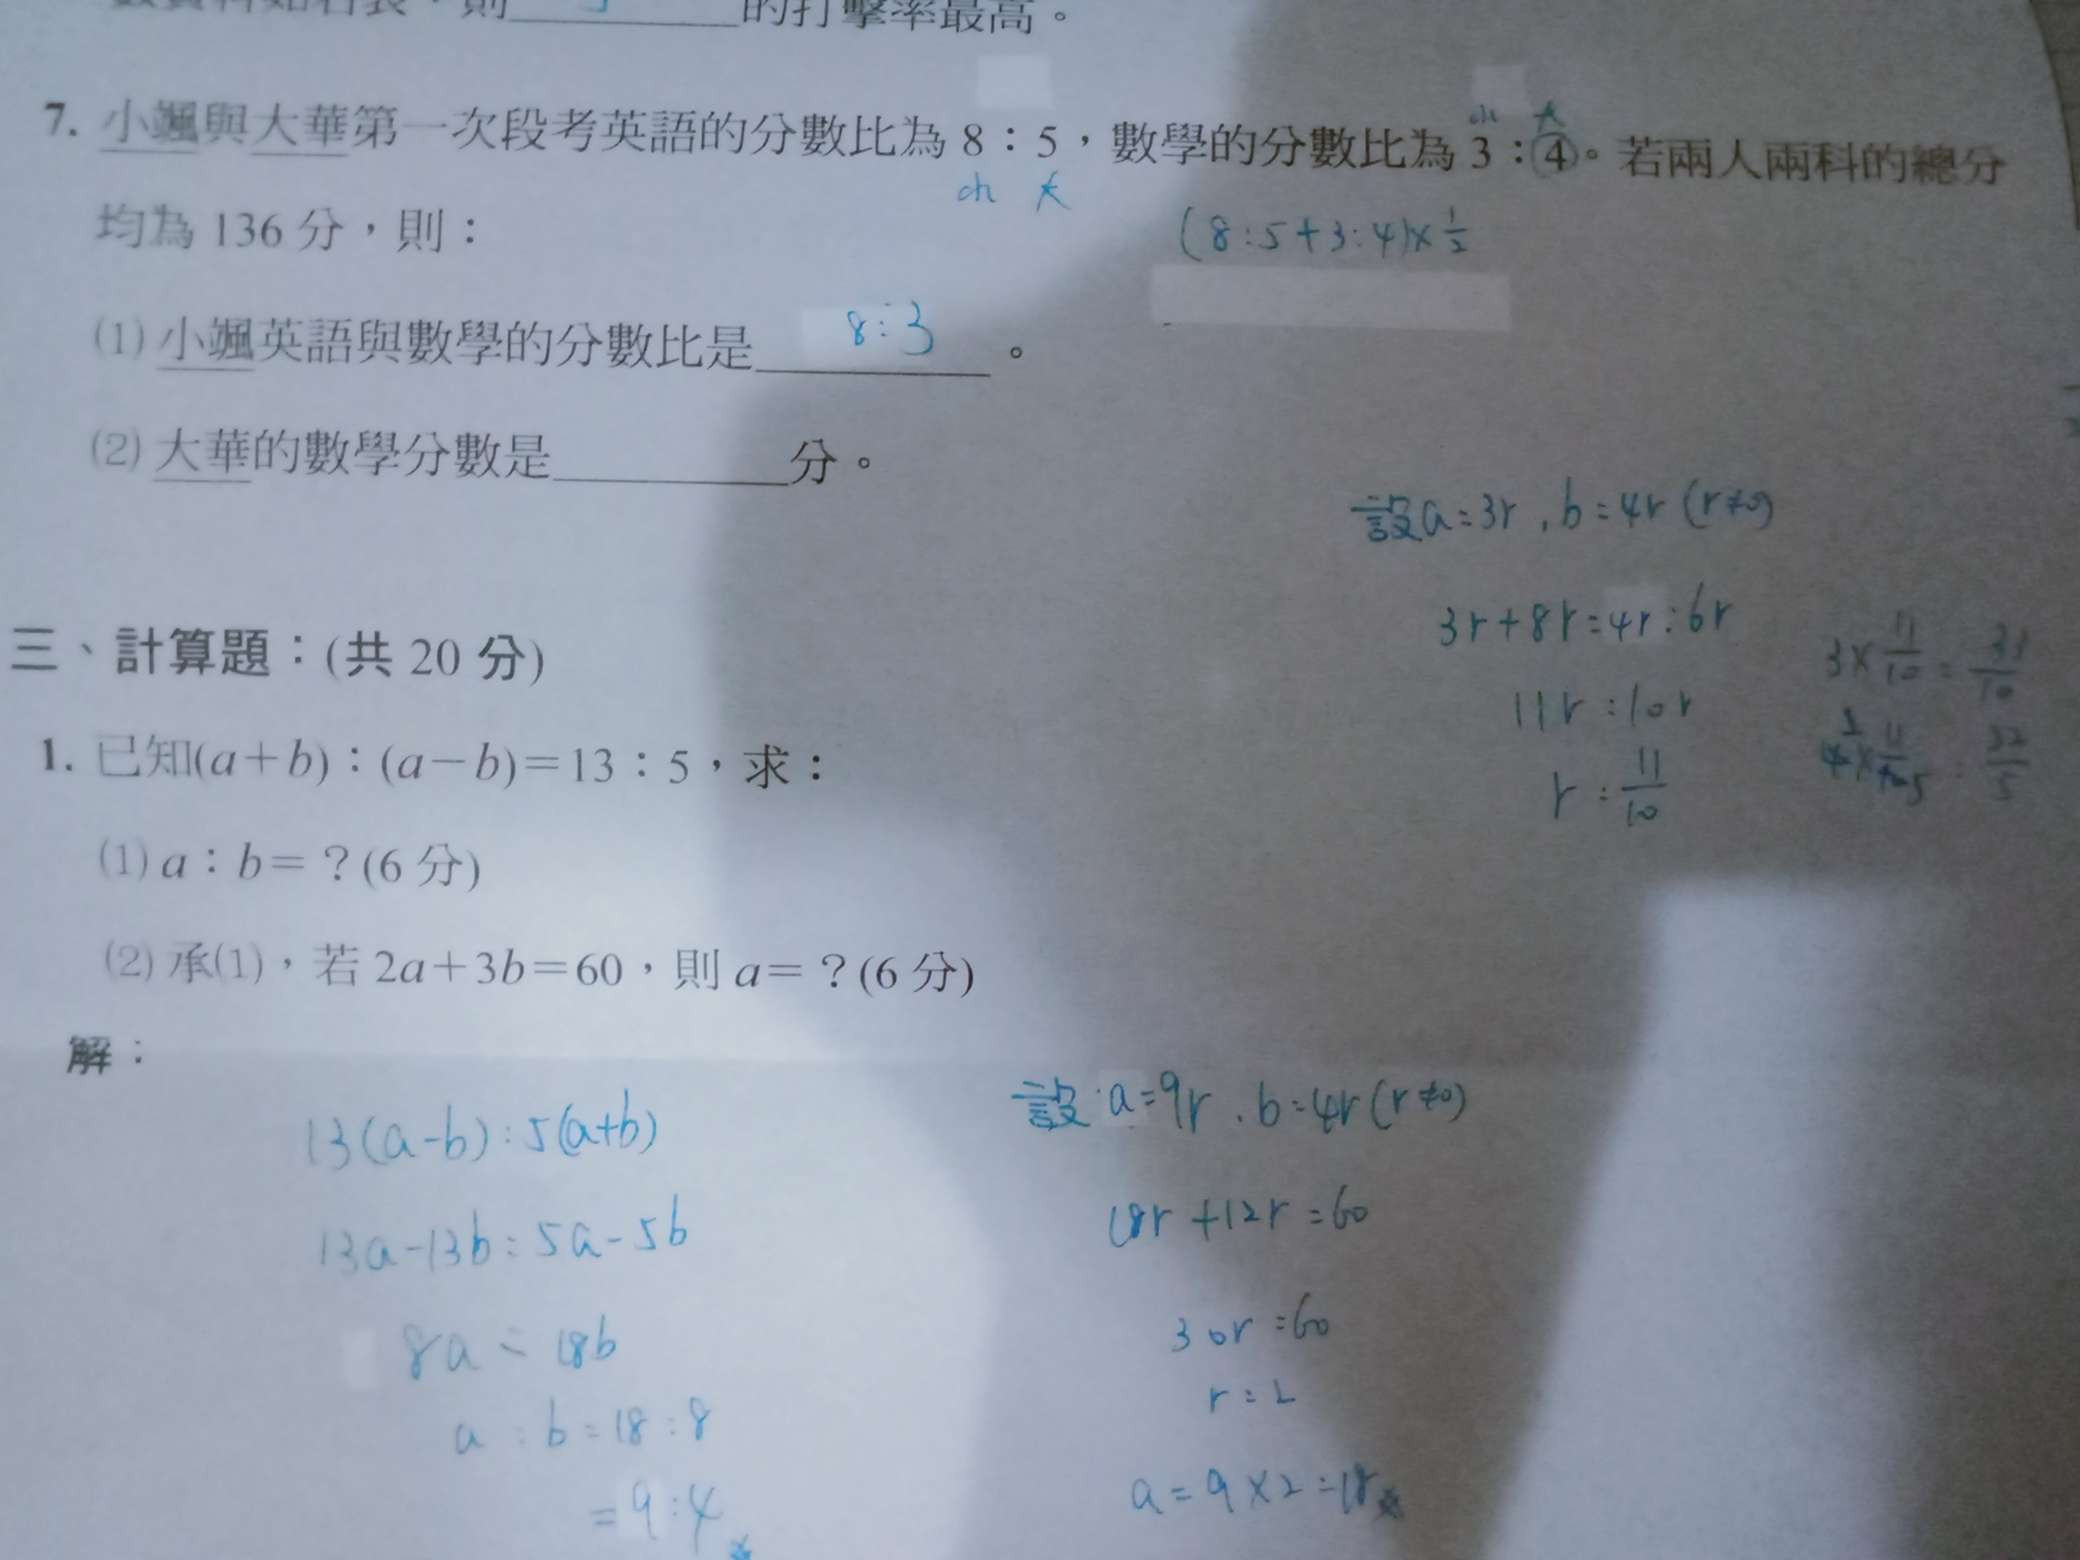 的打擊率最高。
7. 小颯與大華第一次段考英語的分數比為 8：5，數學的分數比為 3：④。若兩人兩科的總分
均為 136 分，則：
(8:5+3:4)×1/2
(1) 小颯英語與數學的分數比是 8:3 。
(2) 大華的數學分數是________分。
設a=3r , b=4r (r≠0)
3r+8r=4r:6r
11r:10r
r:11/10
3×11/10=33/10
三、計算題：(共 20 分)
1. 已知(a+b)：(a−b)=13：5，求：
(1) a：b=？(6 分)
(2) 承(1)，若 2a+3b=60，則 a=？(6 分)
解：
13(a-b):5(a+b)
13a-13b:5a-5b
8a=18b
a:b=18:8
=9:4
設:a=9r、b=4r(r≠0)
18r+12r=60
30r=60
r=2
a=9×2=18